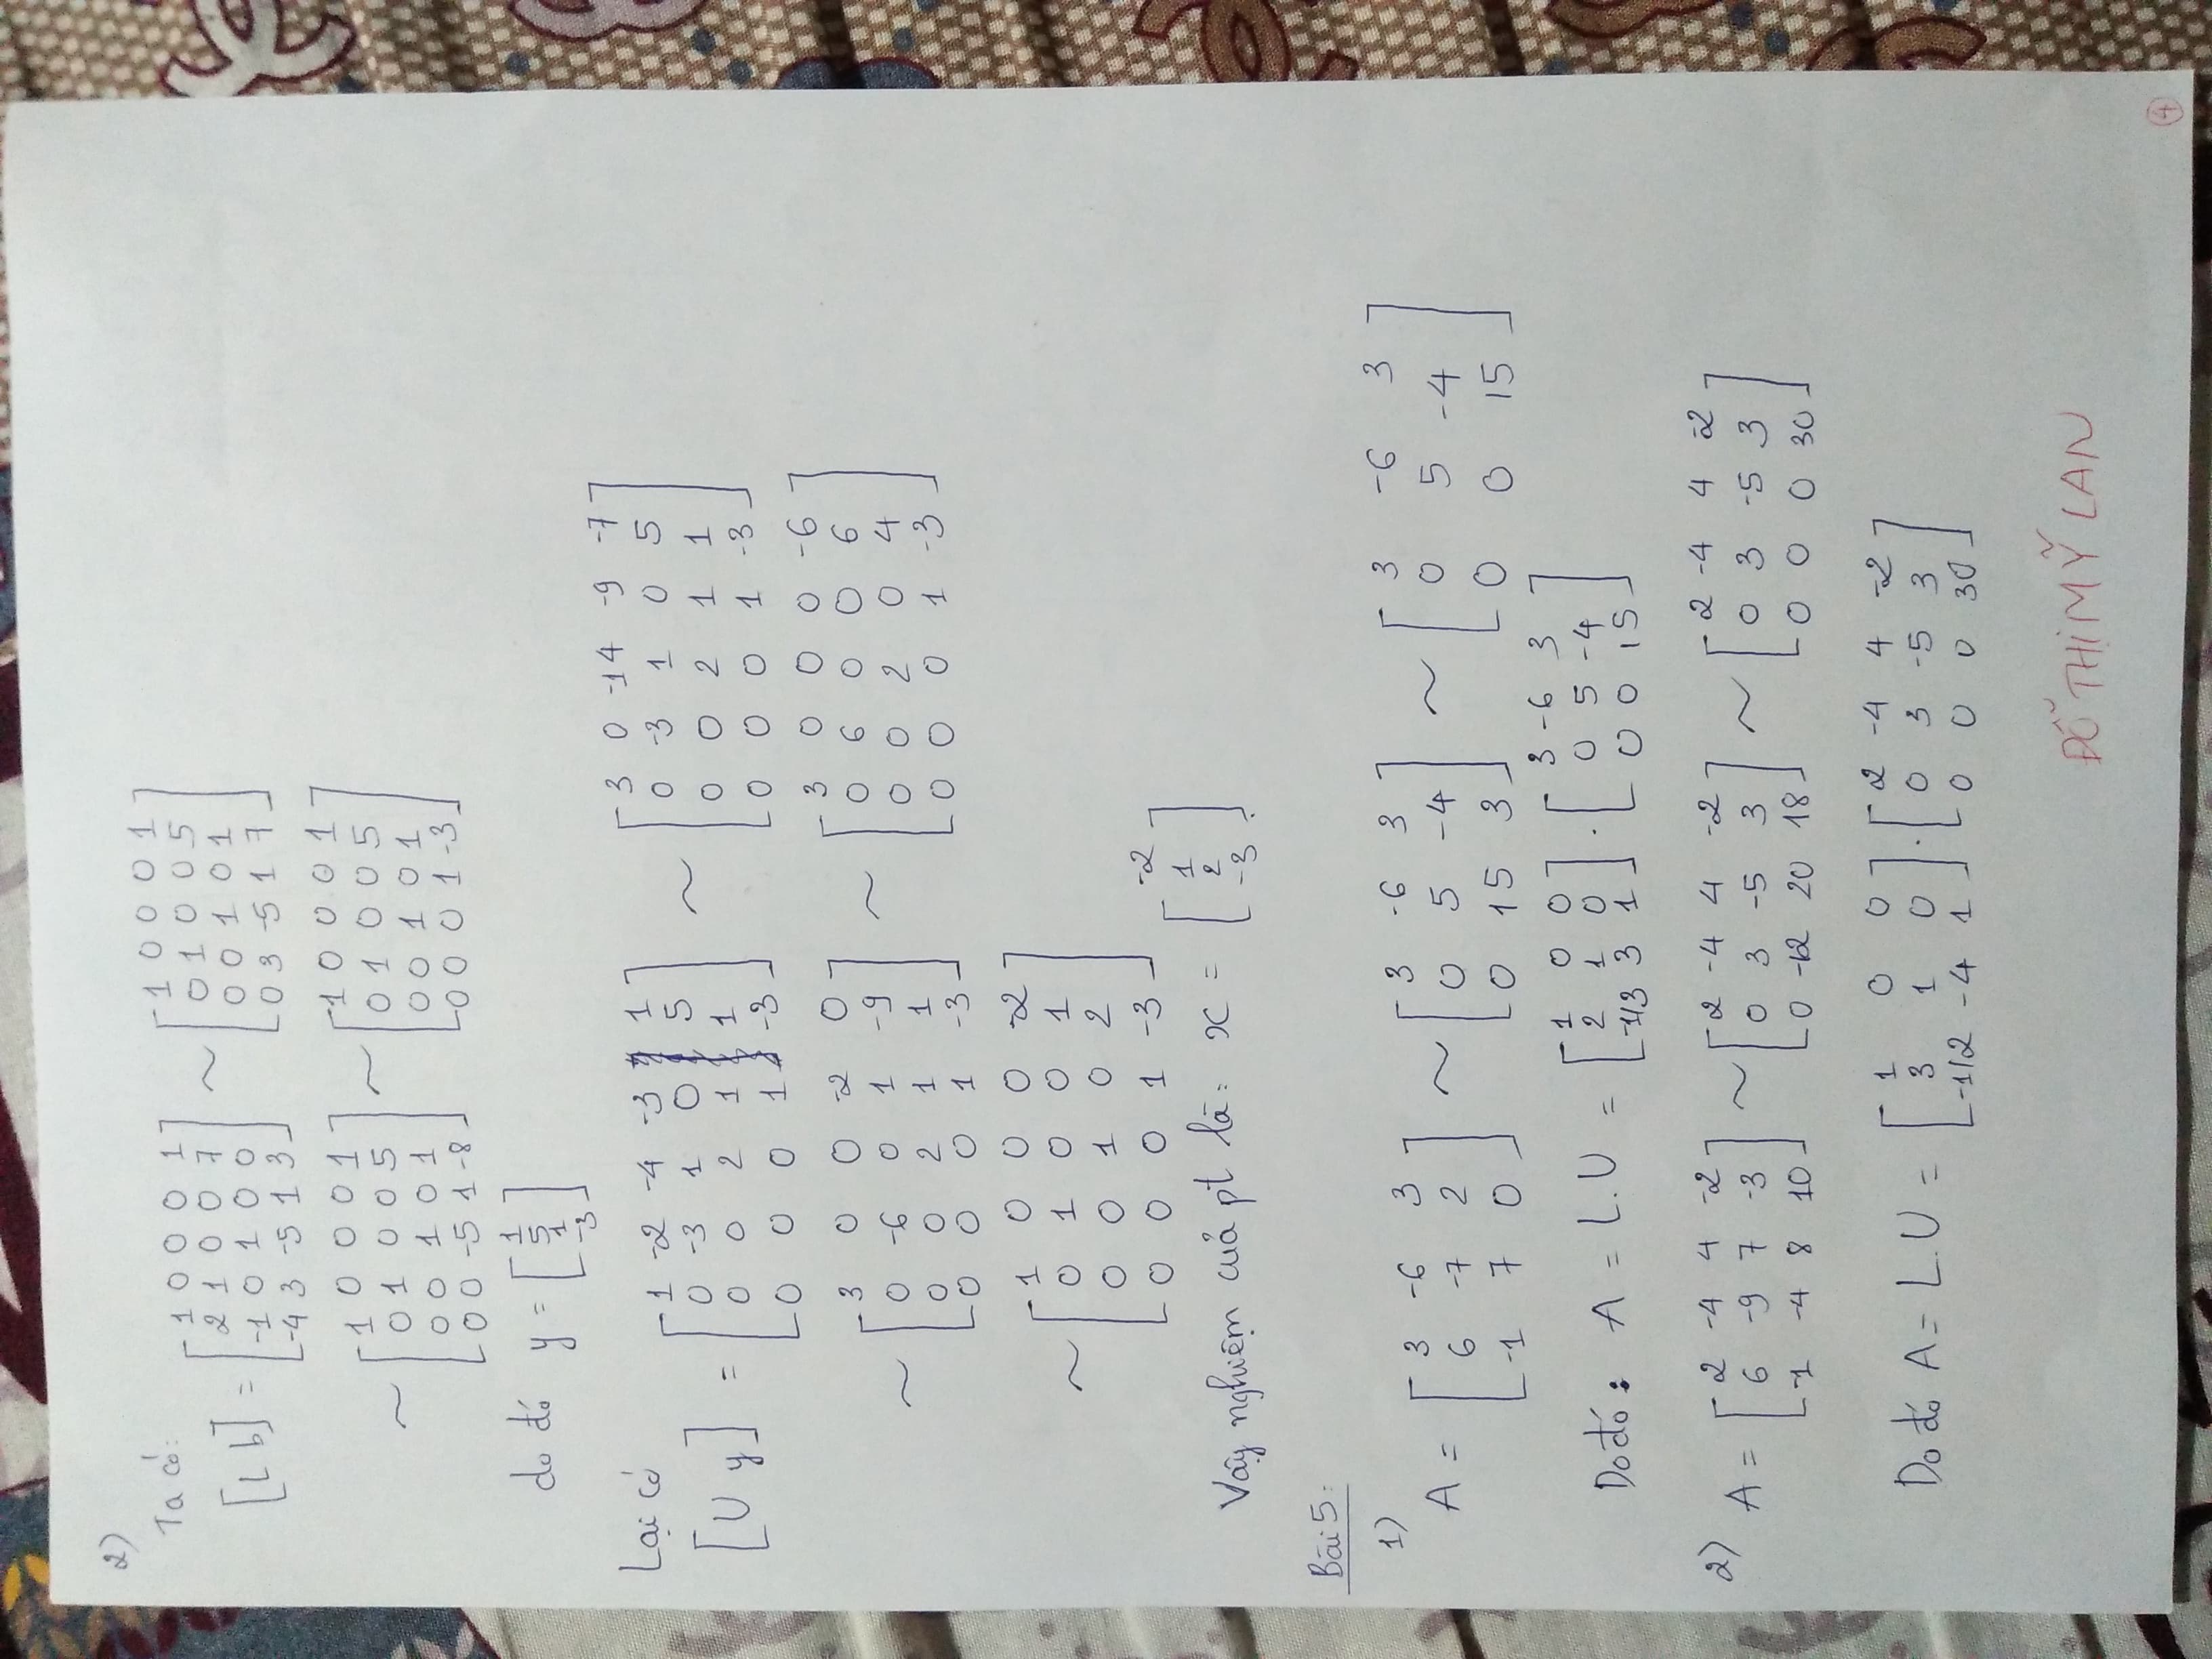 2)
Ta có:
[L b] = [1 0 0 0 1; 2 1 0 0 7; -1 0 1 0 0; -4 3 -5 1 3] ~ [1 0 0 0 1; 0 1 0 0 5; 0 0 1 0 1; 0 3 -5 1 7]
~ [1 0 0 0 1; 0 1 0 0 5; 0 0 1 0 1; 0 0 -5 1 -8] ~ [1 0 0 0 1; 0 1 0 0 5; 0 0 1 0 1; 0 0 0 1 -3]
do đó y = [1; 5; 1; -3]
Lại có
[U y] = [1 -2 -4 -3 1; 0 -3 1 0 5; 0 0 2 1 1; 0 0 0 1 -3] ~ [3 0 -14 -9 -7; 0 -3 1 0 5; 0 0 2 1 1; 0 0 0 1 -3]
~ [3 0 0 -2 0; 0 -6 0 1 -9; 0 0 2 1 1; 0 0 0 1 -3] ~ [3 0 0 0 -6; 0 6 0 0 6; 0 0 2 0 4; 0 0 0 1 -3]
~ [1 0 0 0 -2; 0 1 0 0 1; 0 0 1 0 2; 0 0 0 1 -3]
Vậy nghiệm cuả pt là: x = [-2; 1; 2; -3].
Bài 5:
1)
A = [3 -6 3; 6 -7 2; -1 7 0] ~ [3 -6 3; 0 5 -4; 0 15 3] ~ [3 -6 3; 0 5 -4; 0 0 15]
Do đó: A = L.U = [1 0 0; 2 1 0; -1/3 3 1] . [3 -6 3; 0 5 -4; 0 0 15]
2) A = [2 -4 4 -2; 6 -9 7 -3; -1 -4 8 10] ~ [2 -4 4 -2; 0 3 -5 3; 0 -12 20 18] ~ [2 -4 4 -2; 0 3 -5 3; 0 0 0 30]
Do đó A = L.U = [1 0 0; 3 1 0; -1/2 -4 1] . [2 -4 4 -2; 0 3 -5 3; 0 0 0 30]
ĐỖ THỊ MỸ LAN
4